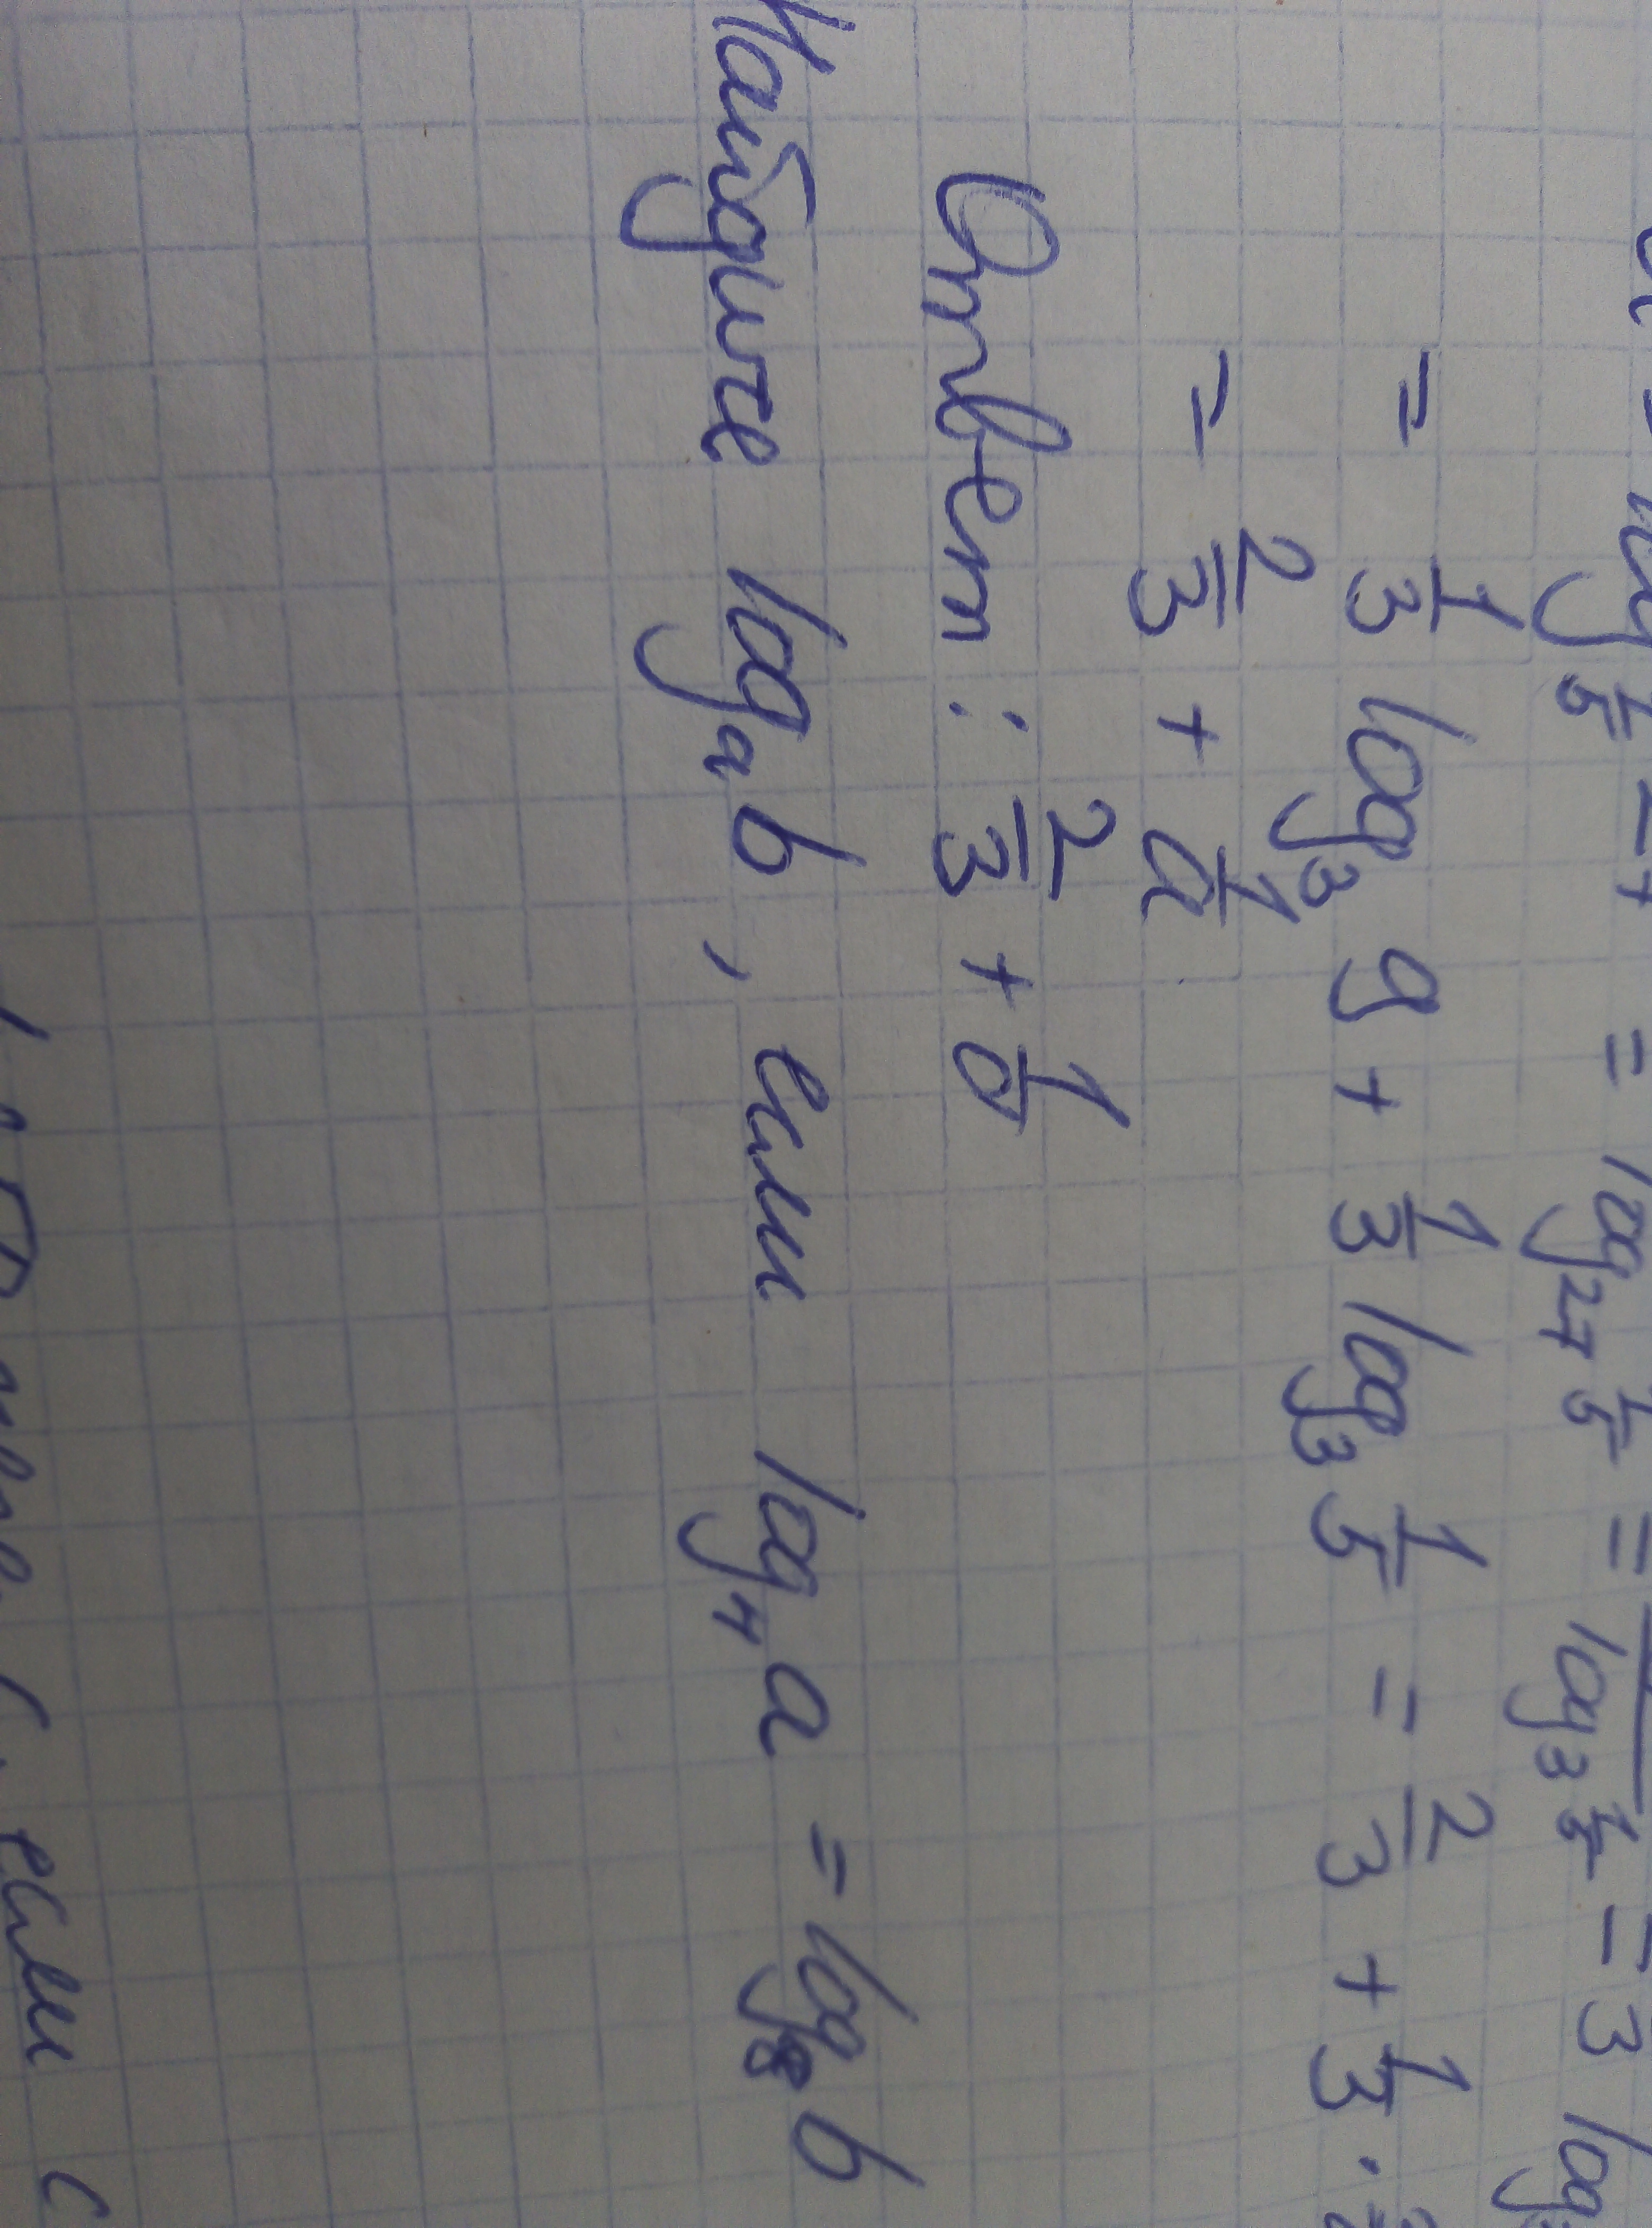 = log₂₇ 1/5 = log₃ 1/5 = 3 log
= 1/3 log₃ 9 + 1/3 log₃ 1/5 = 2/3 + 1/3 ·
= 2/3 + 1/a
Ответ: 2/3 + 1/a
Найдите logₐb, если log₄a = log₈b
если c